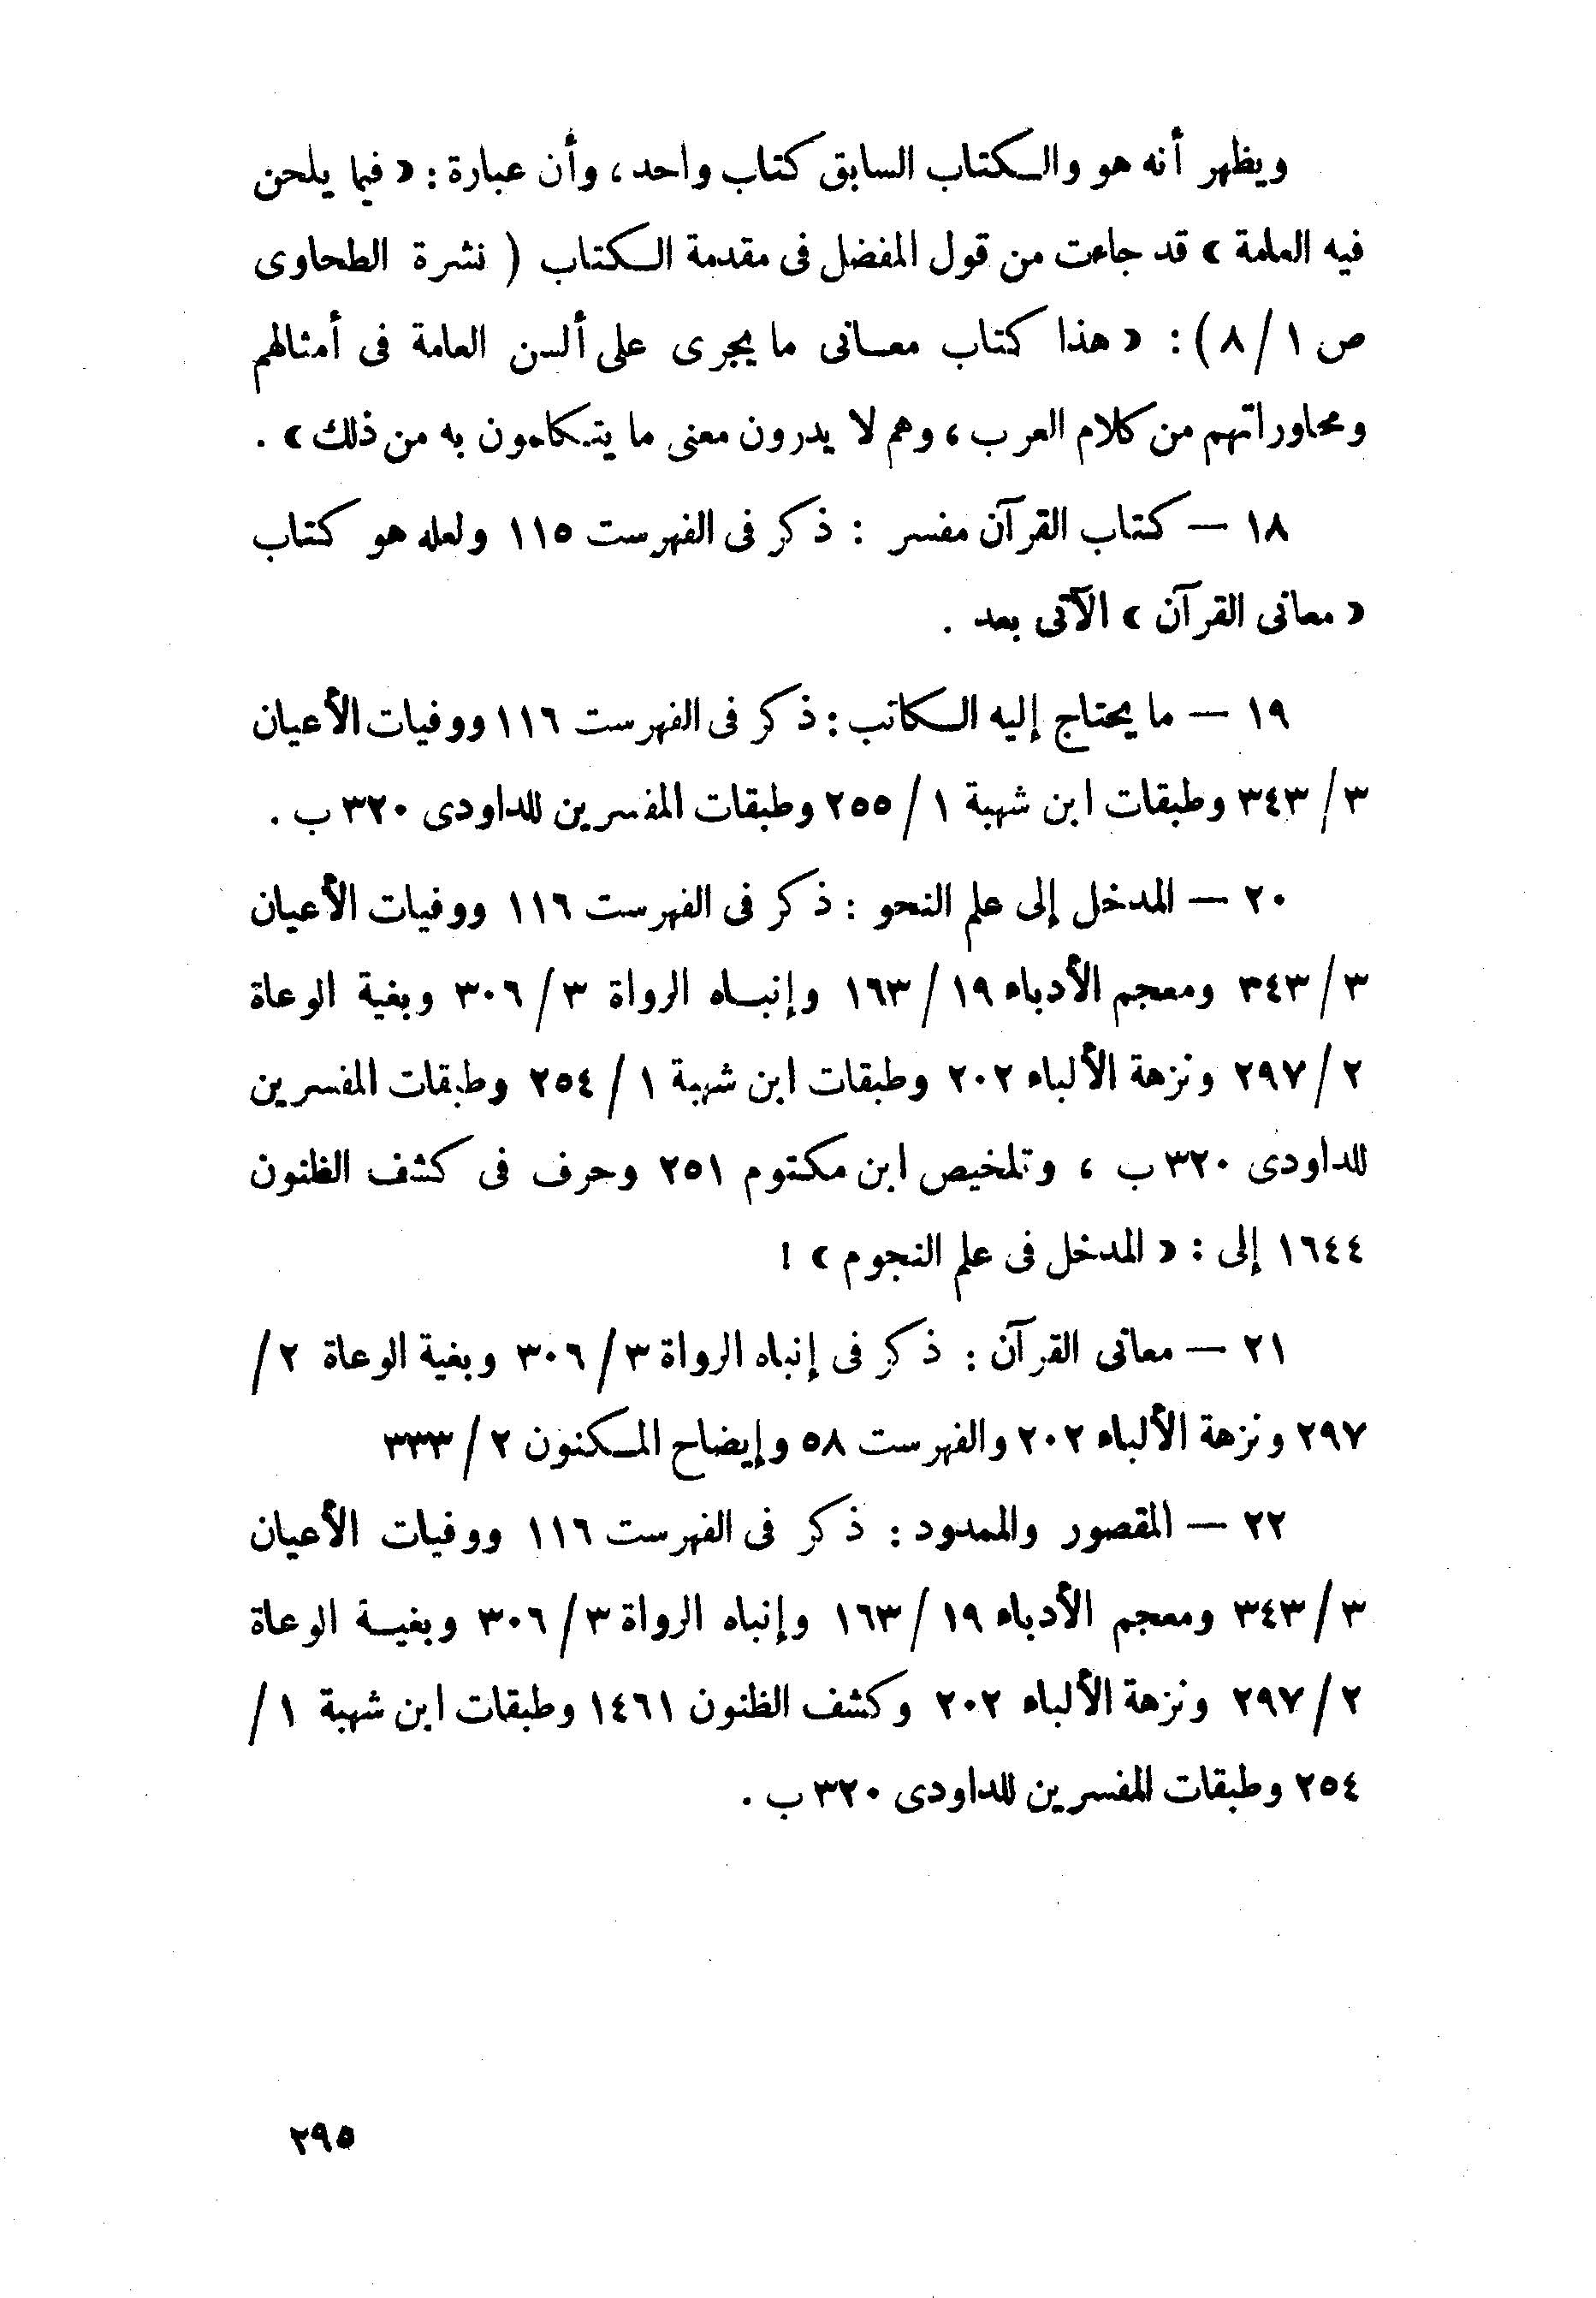 ويظهر أنه هو والكتاب السابق كتاب واحد ، وأن عبارة : « فيما يلحن
فيه العامة » قد جاءت من قول المفضل فى مقدمة الكتاب ( نشرة الطحاوى
ص ١ / ٨ ) : « هذا كتاب معانى ما يجرى على ألسن العامة فى أمثالهم
ومحاوراتهم من كلام العرب ، وهم لا يدرون معنى ما يتكلمون به من ذلك » .
١٨ — كتاب القرآن مفسر : ذكر فى الفهرست ١١٥ ولعله هو كتاب
« معانى القرآن » الآتى بعد .
١٩ — ما يحتاج إليه الكاتب : ذكر فى الفهرست ١١٦ ووفيات الأعيان
٣ / ٣٤٣ وطبقات ابن شهبة ١ / ٢٥٥ وطبقات المفسرين للداودى ٣٢٠ ب .
٢٠ — المدخل إلى علم النحو : ذكر فى الفهرست ١١٦ ووفيات الأعيان
٣ / ٣٤٣ ومعجم الأدباء ١٩ / ١٦٣ وإنباه الرواة ٣ / ٣٠٦ وبغية الوعاة
٢ / ٢٩٧ ونزهة الألباء ٢٠٢ وطبقات ابن شهبة ١ / ٢٥٤ وطبقات المفسرين
للداودى ٣٢٠ ب ، وتلخيص ابن مكتوم ٢٥١ وحرف فى كشف الظنون
١٦٤٤ إلى : « المدخل فى علم النجوم » !
٢١ — معانى القرآن : ذكر فى إنباه الرواة ٣ / ٣٠٦ وبغية الوعاة ٢ /
٢٩٧ ونزهة الألباء ٢٠٢ والفهرست ٥٨ وإيضاح المكنون ٢ / ٣٣٣
٢٢ — المقصور والممدود : ذكر فى الفهرست ١١٦ ووفيات الأعيان
٣ / ٣٤٣ ومعجم الأدباء ١٩ / ١٦٣ وإنباه الرواة ٣ / ٣٠٦ وبغية الوعاة
٢ / ٢٩٧ ونزهة الألباء ٢٠٢ وكشف الظنون ١٤٦١ وطبقات ابن شهبة ١ /
٢٥٤ وطبقات المفسرين للداودى ٣٢٠ ب .
٢٩٥